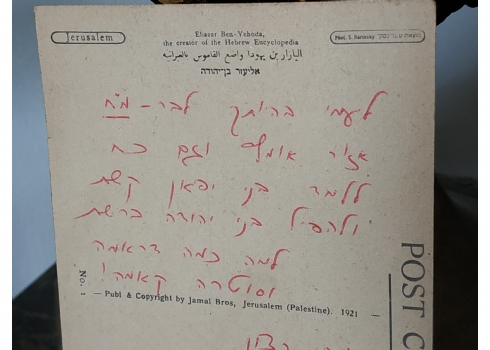 Jerusalem
Eliezer Ben-Yehuda,
the creator of the Hebrew Encyclopedia
اليازار بن يهودا واضع القاموس بالعبرانية
אליעזר בן־יהודה
Phot. S. Narinsky
לעמי בהיותך לבר - מח
אזור אומץ וגם כח
ללמד בני יפאן קשת
ולהפיל בני יהודה ברשת
למה כמה דראמה
וסוטרה קאמה!
No. 1
— Publ & Copyright by Jamal Bros, Jerusalem (Palestine). 1921 —
POST C